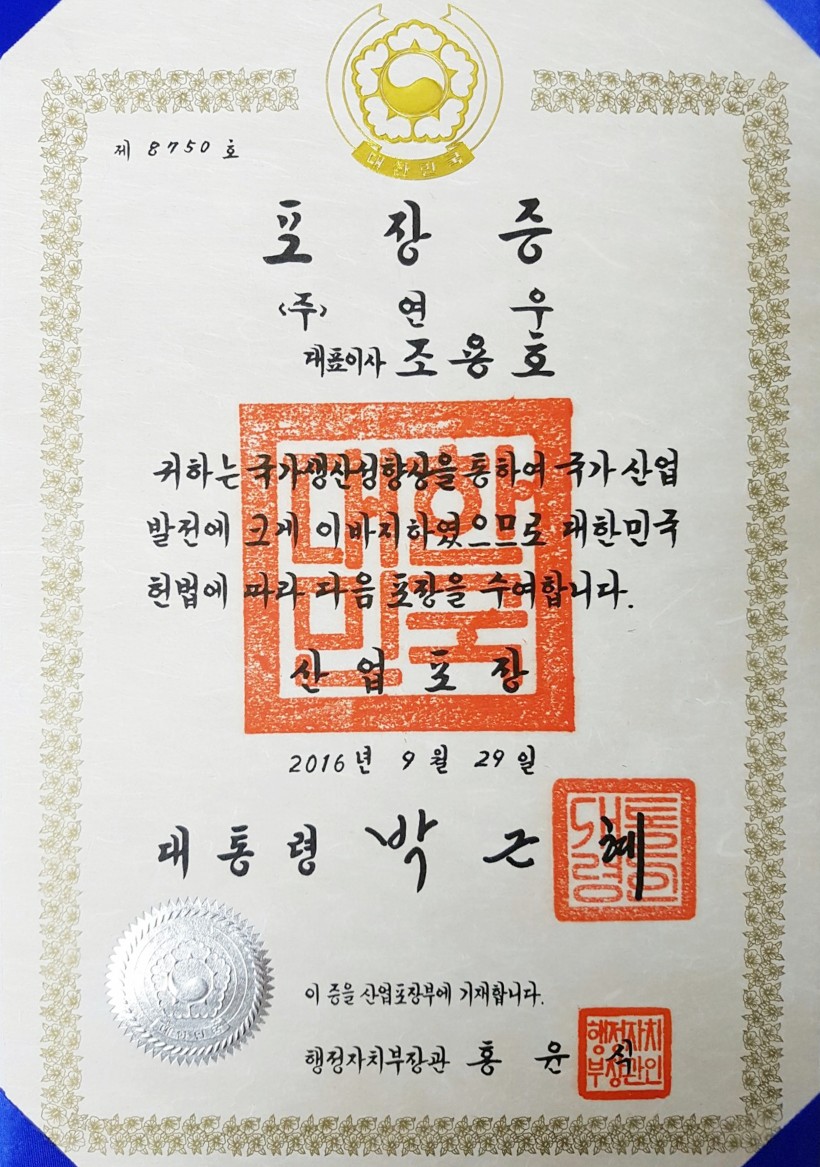 대한민국
제 8750 호
포 장 증
(주) 연 우
대표이사 조용호
귀하는 국가생산성향상을 통하여 국가 산업
발전에 크게 이바지하였으므로 대한민국
헌법에 따라 다음 포장을 수여합니다.
대한
민국
산 업 포 장
2016년 9월 29일
대통령 박 근 혜
대통령
대한민국
이 증을 산업포장부에 기재합니다.
행정자치부장관 홍 윤 식
행정자치
부장관인